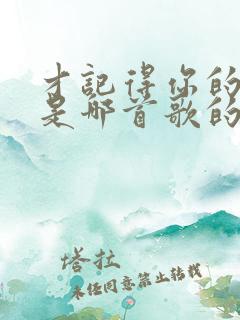 才记得你的
是哪首歌的
塔拉
未经同意禁止转载